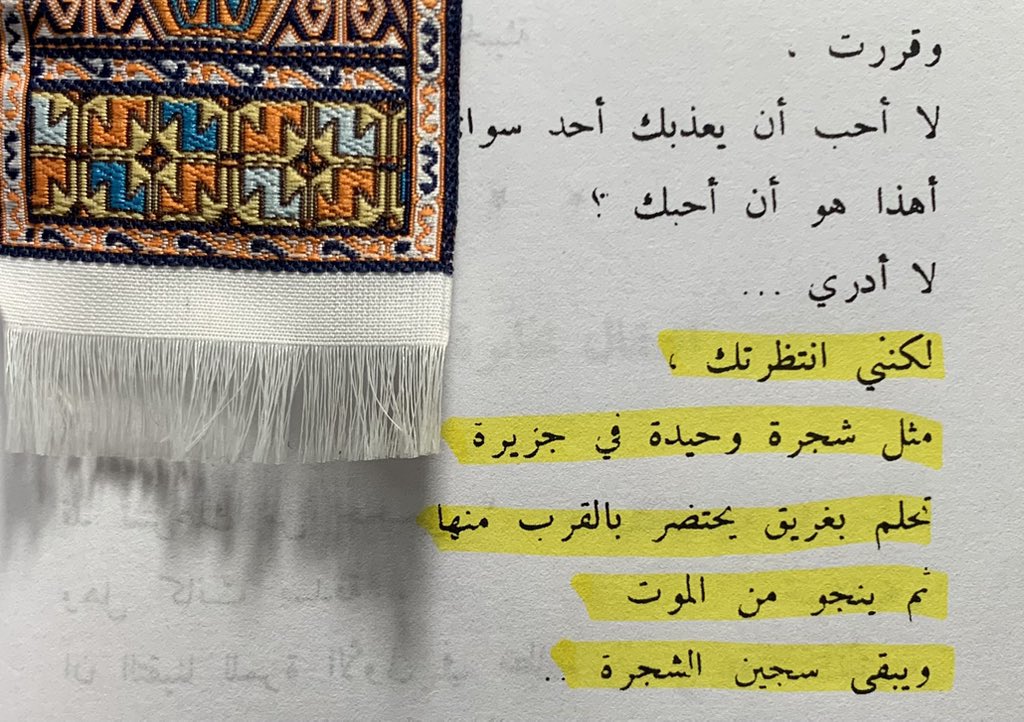 وقررت .
لا أحب أن يعذبك أحد
أهذا هو أن أحبك ؟
لا أدري ...
لكنني انتظرتك ،
مثل شجرة وحيدة في جزيرة
تحلم بغريق يحتضر بالقرب منها
ثم ينجو من الموت
ويبقى سجين الشجرة ..